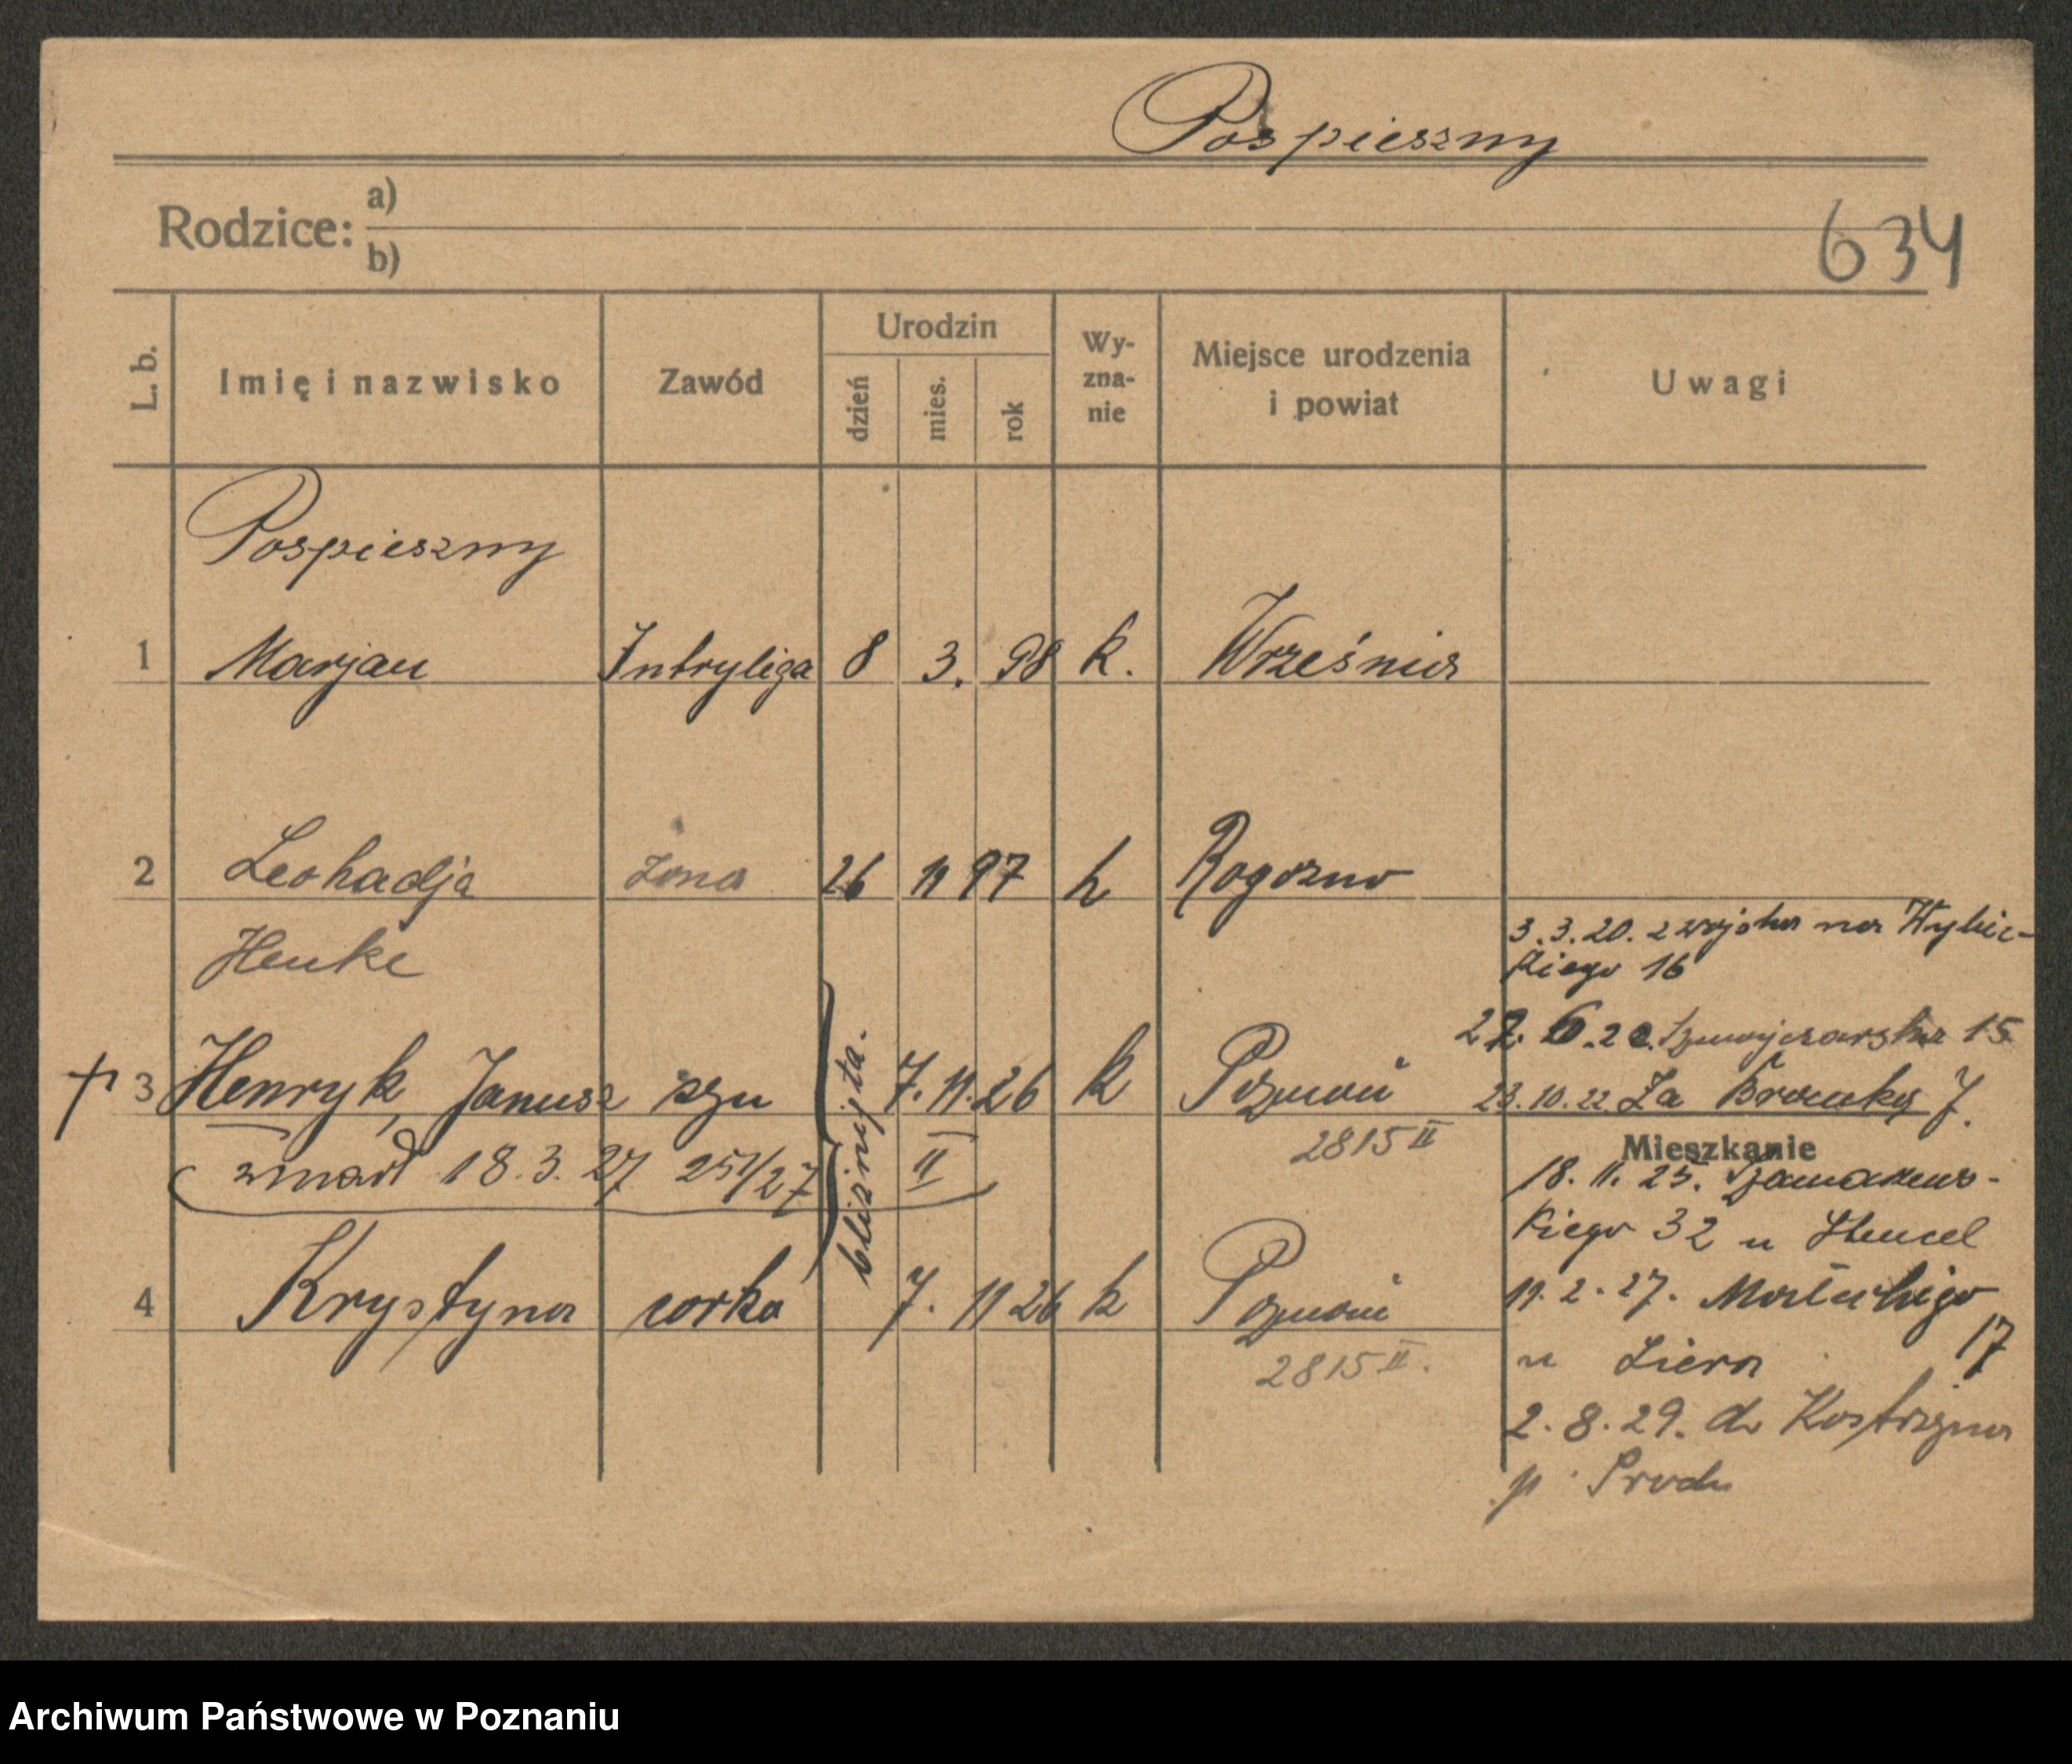 Pospieszny
Rodzice: a)
b)
634
L. b. Imię i nazwisko Zawód Urodzin dzień mies. rok Wy-zna-nie Miejsce urodzenia i powiat Uwagi
Pospieszny
1 Marjan Intryliga 8 3. 98 k. Września
2 Leokadja żona 26 11 97 k Rogozno
Henke
3.3.20. z wojska na Wybic-
kiego 16
27. 6. 20. Szwajcarska 15
† 3 Henryk, Janusz syn 7. 11. 26 k Poznań
23.10.22 Za Bramką 7.
bliźnięta.
2815 II
Mieszkanie
zmarł 18.3.27 251/27 II
18. 11. 25.
kiego 32 u Hencel
4 Krystyna corka 7. 11 26 k Poznań
11. 2. 27. Małeckiego 17
2815 II.
u Ziera
2. 8. 29. do Kostrzyna
p. Środa
Archiwum Państwowe w Poznaniu